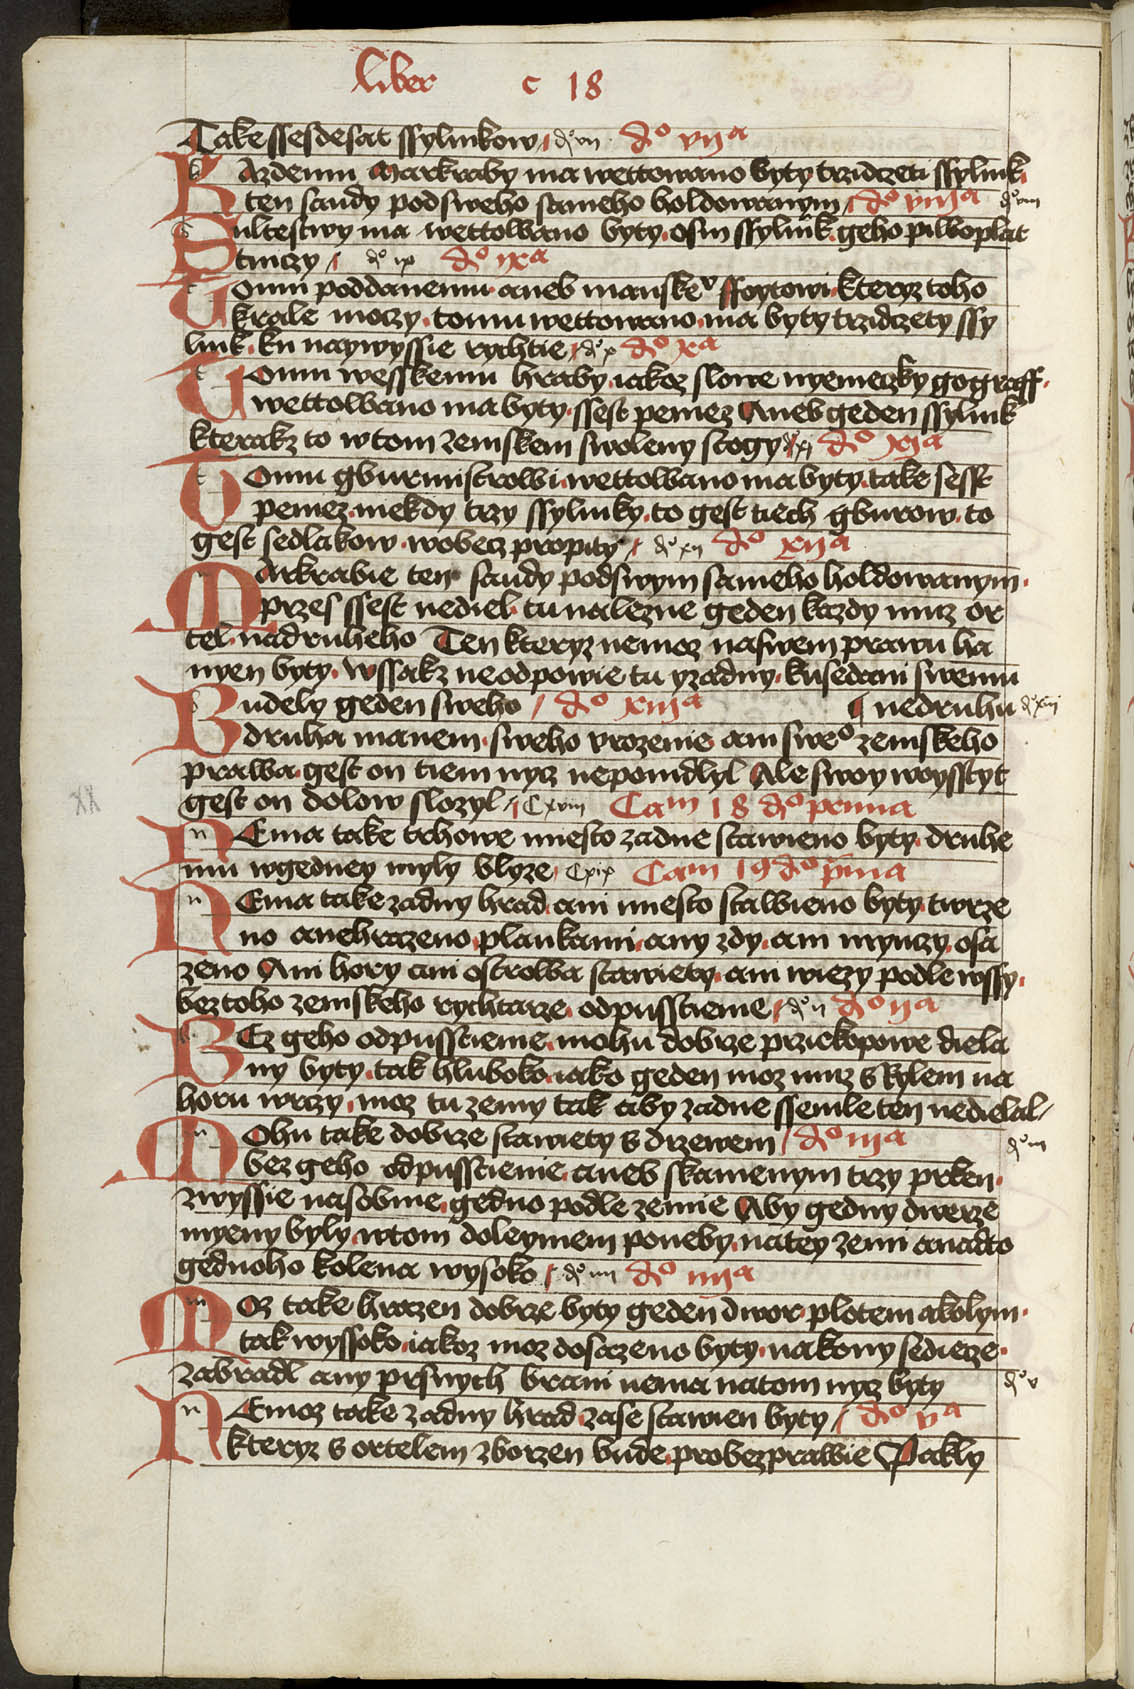 Liber c 18
Take ssesdesat ssylinkow dͦ vii dͦ vijᵃ
Kazdemu Markraby ma wettowano byty trzidczeti ssylink
ten saudy pod sweho sameho holdowanym dͦ viijᵃ dͦ viii
Sultestwy ma wettowano byty osm ssylink geho pilboplat
tniczy dͦ ix dͦ ixᵃ
Tomu poddanemu aneb manskeᵛ ffoytowi kteryz toho
krale moczy tomu wettowano ma byty trzidczety ssy
link ku naywyssie rychtie dͦ x dͦ xᵃ
Tomu wesskemu hraby iakoz slowe nyemeczky gograff
wettowano ma byty ssest peniez Aneb geden ssylink
kterakz to w tom zemskem swoleny stogy dͦ xi dͦ xiᵃ
Tomu gburmistrowi wettowano ma byty take sesst
peniez niekdy trzy ssylinky to gest tiech gburow to
gest sedlakow wobecz propity dͦ xii dͦ xijᵃ
Markrabie ten saudy pod swym sameho holdowanym
przes ssest nediel tu nalezne geden kazdy muz or
tel nadruheho Ten kteryz nemoz naswem prawu ha
nyen byty wssakz neodpowie tu yzadny kusedani swemu
Budely geden sweho dͦ xiijᵃ ¶ nedruhu dͦ xiij
druha manem sweho vrozenie ani sweͦ zemskeho
prawa gest on tiem nycz neponidlyl Ale swoy woysstyt
gest on dolow slozyl C xviii Camᵐ 18 dͦ prima
Nema take trhowe miesto zadne stawieno byty druhe
mu wgedney myly blyze C xix Camᵐ 19 dͦ pͥma
Nema take zadny hrad ani miesto stawieno byty twrze
no anehrazeno plankami any zdy ani mynczy osa
zeno Ani hory ani ostrowa stawiety ani wiezy podle wssy
beztoho zemskeho rychtarze odpusstienie dͦ ii dͦ ijᵃ
Bez geho odpusstienie mohu dobrze prziekopowe diela
ny byty tak hluboko iako geden moz muz s rylem na
horu wrczy moz tu zemy tak aby zadne ssemle ten nedielal
Mohu take dobrze stawiety s drzewem dͦ iijᵃ dͦ iii
bez geho odpusstienie aneb skamenym trzy prken
zwyssie nasobnie gedno podle zemie Aby gedny dwerze
myeny byly wtom doleyniem poneby natey zemi anadto
gednoho kolena wysoko dͦ iiii dͦ iiijᵃ
Moz take hrazen dobrze byty geden dwor plotem akolym
tak wyssoko iakoz moz dosazeno byty nakony sedieze
zabradl any prsnych brani nema natom nycz byty dͦ v
Nemoz take zadny hrad zase stawien byty dͦ vᵃ
kteryz s ortelem zborzen bude probezprawie Pakly